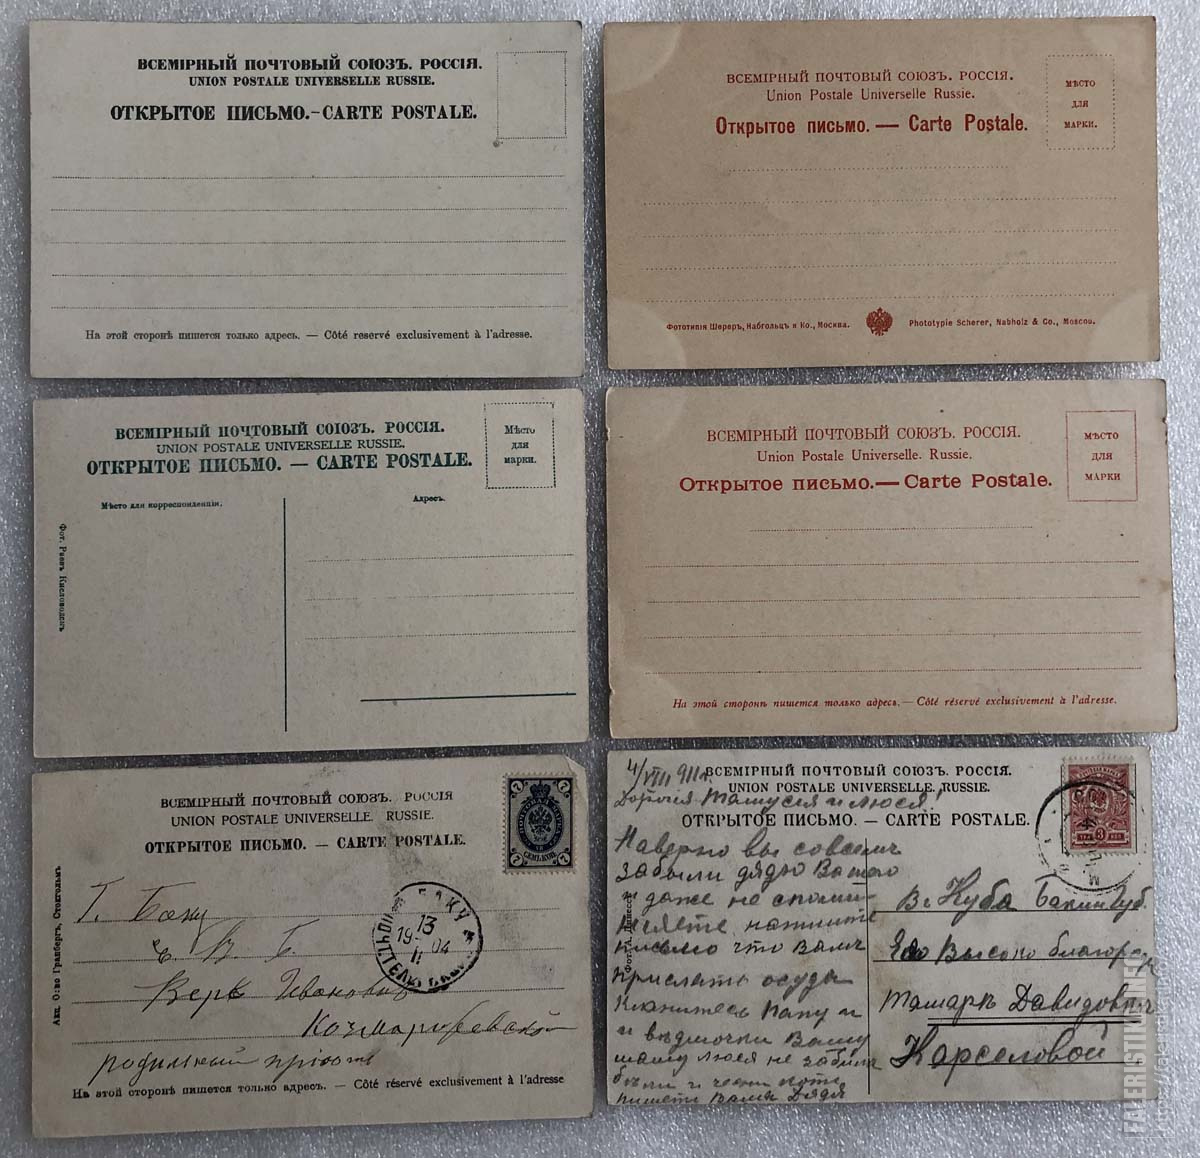 ВСЕМІРНЫЙ ПОЧТОВЫЙ СОЮЗЪ. РОССІЯ.
UNION POSTALE UNIVERSELLE RUSSIE.
ОТКРЫТОЕ ПИСЬМО.-CARTE POSTALE.
На этой сторонѣ пишется только адресъ. — Côté reservé exclusivement à l'adresse.
ВСЕМІРНЫЙ ПОЧТОВЫЙ СОЮЗЪ. РОССІЯ.
Union Postale Universelle Russie.
Открытое письмо. — Carte Postale.
МѢСТО
ДЛЯ
МАРКИ.
Фототипія Шереръ, Набгольцъ и Ко., Москва.
Phototypie Scherer, Nabholz & Co., Moscou.
ВСЕМІРНЫЙ ПОЧТОВЫЙ СОЮЗЪ. РОССІЯ.
UNION POSTALE UNIVERSELLE RUSSIE.
ОТКРЫТОЕ ПИСЬМО. — CARTE POSTALE.
Мѣсто
для
марки.
Мѣсто для корреспонденціи.
Адресъ.
Фот. Раевъ Кисловодскъ
ВСЕМІРНЫЙ ПОЧТОВЫЙ СОЮЗЪ. РОССІЯ.
Union Postale Universelle. Russie.
Открытое письмо.— Carte Postale.
МѢСТО
ДЛЯ
МАРКИ
На этой сторонѣ пишется только адресъ. — Côté réservé exclusivement à l'adresse.
ВСЕМІРНЫЙ ПОЧТОВЫЙ СОЮЗЪ. РОССІЯ
UNION POSTALE UNIVERSELLE. RUSSIE.
ОТКРЫТОЕ ПИСЬМО. — CARTE POSTALE.
7 7
ПОЧТОВАЯ МАРКА
СЕМЬ КОП.
7 7
Г. Баку
Е. В. Б.
Верѣ Ивановнѣ
родильный пріютъ
БАКУ
13
19 04
II
Акц. О-во Гранбергъ, Стокгольмъ.
На этой сторонѣ пишется только адресъ. — Côté réservé exclusivement à l'adresse
4/VIII 911 г.
ВСЕМІРНЫЙ ПОЧТОВЫЙ СОЮЗЪ. РОССІЯ.
UNION POSTALE UNIVERSELLE. RUSSIE.
ОТКРЫТОЕ ПИСЬМО. — CARTE POSTALE.
3
Дорогія Тамуся и Люся!
Наверно вы совсемъ
забыли дядю Вашего
и даже не вспоми-
наете напишите
письмо что Вамъ
прислать отсюда
Кланитесь Папу и
Вашу
Люся не забыла
пишетъ Вамъ Дядя
В г. Куба Бакин Губ.
Его Высокоблагород
Тамарѣ Давидовнѣ
Карселовой
FALERISTIKA.INFO